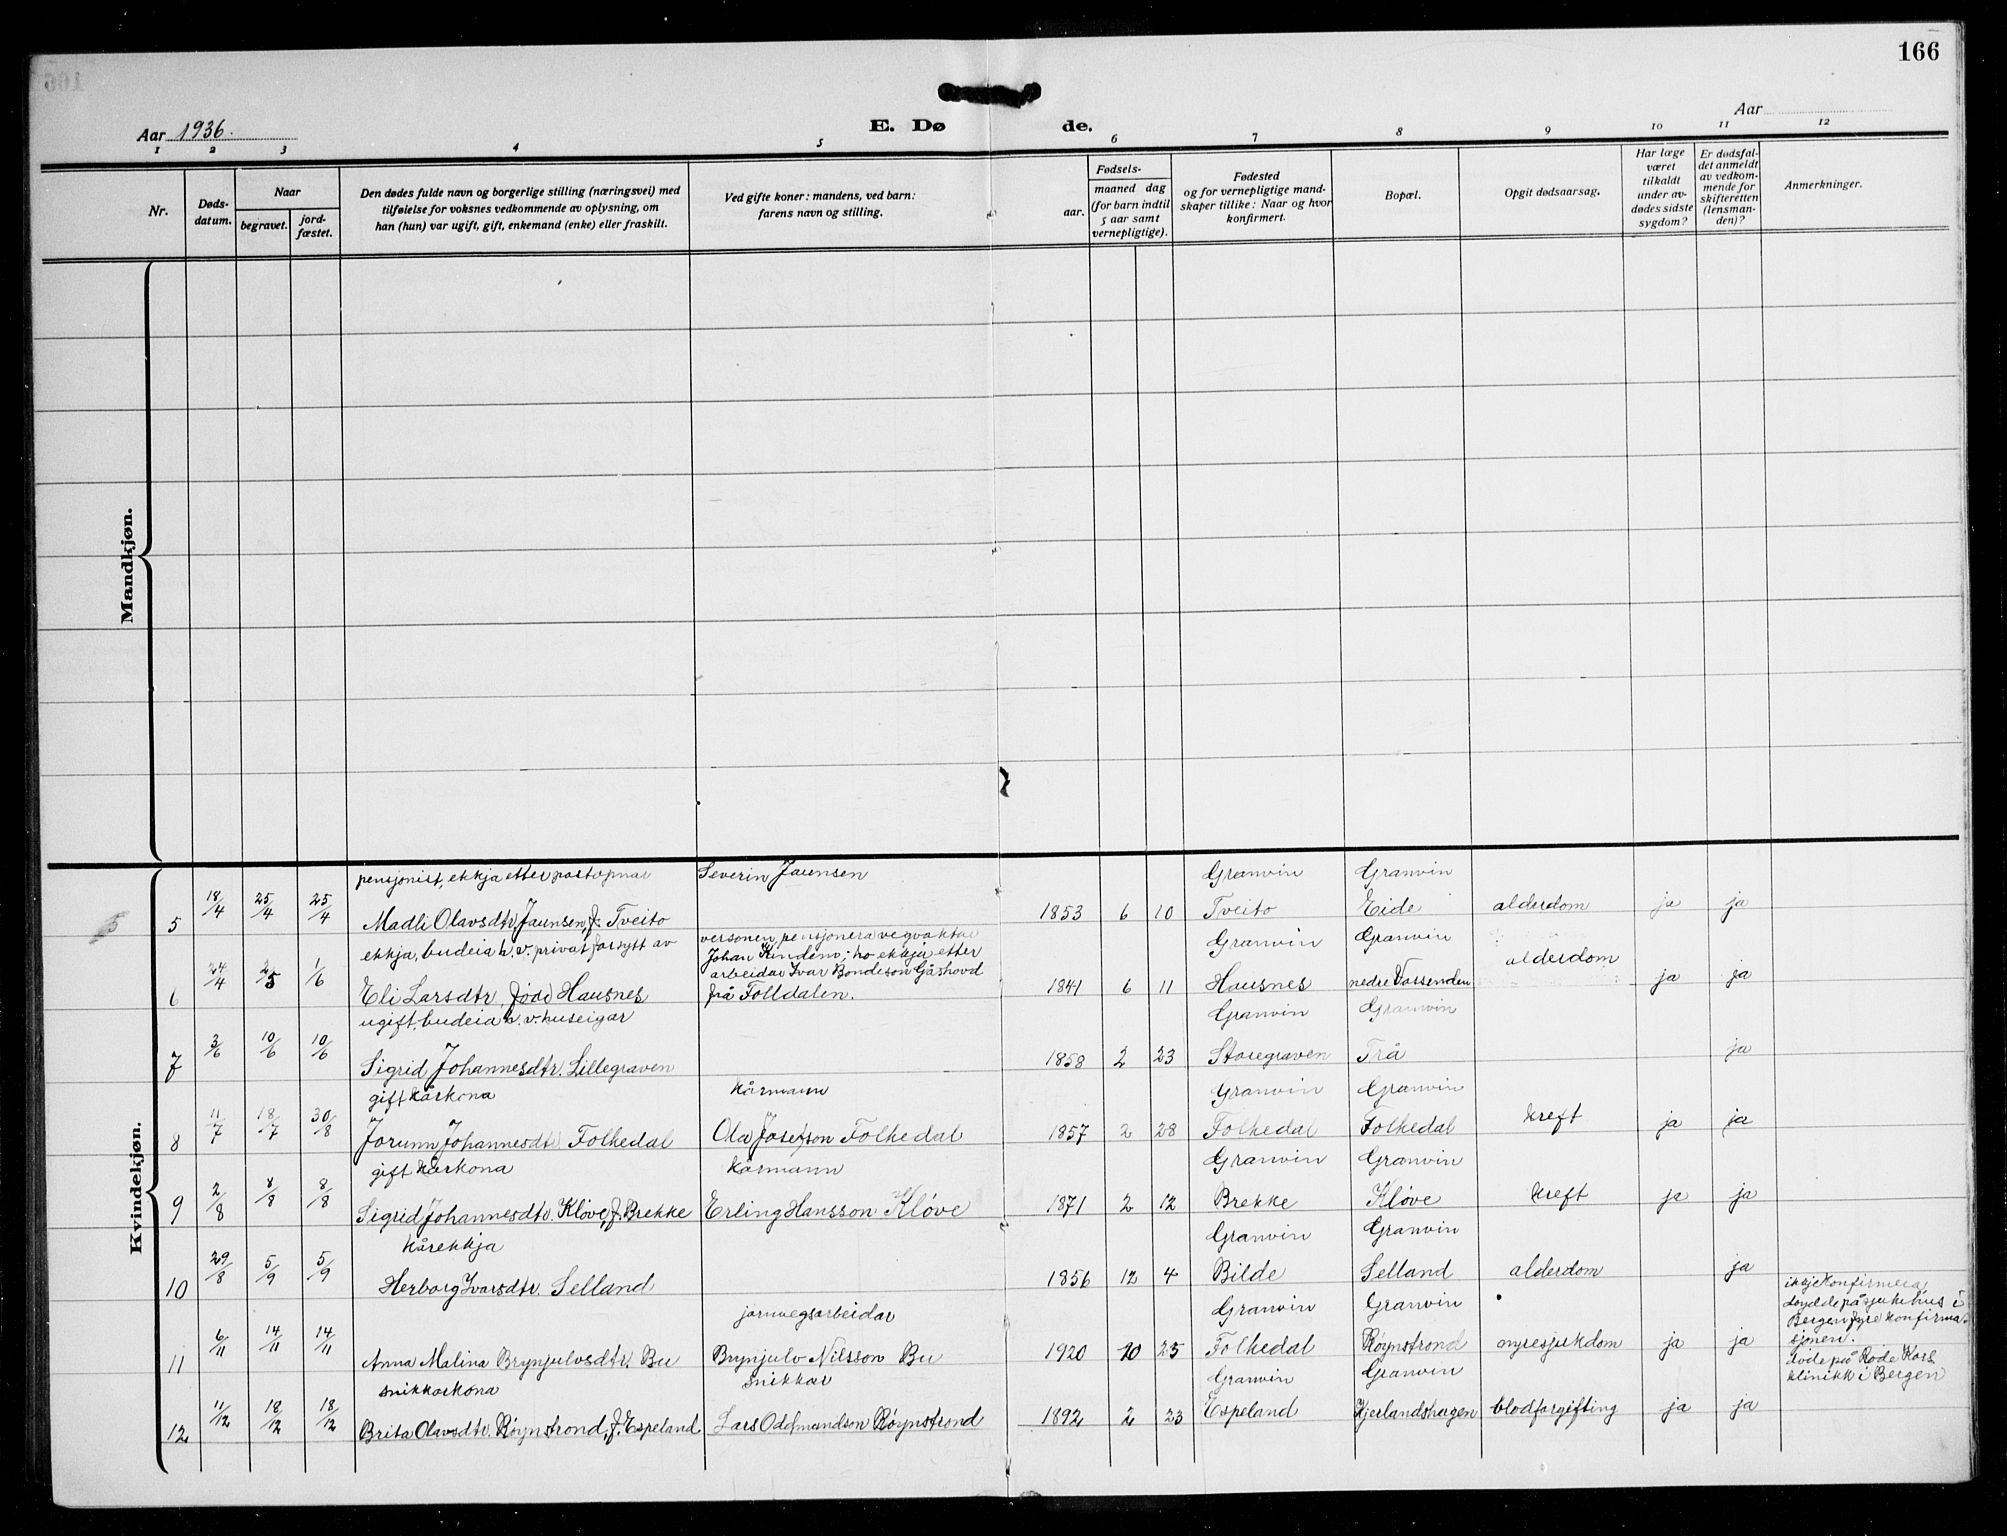 166
Aar 1936.
E. Dø de.
Aar
1 2 3 4 5 6 7 8 9 10 11 12
Nr.
Døds-
datum.
Naar
begravet.
jord-
fæstet.
Den dødes fulde navn og borgerlige stilling (næringsvei) med
tilføielse for voksnes vedkommende av oplysning, om
han (hun) var ugift, gift, enkemand (enke) eller fraskilt.
Ved gifte koner: mandens, ved barn:
farens navn og stilling.
Fødsels-
aar.
maaned dag
(for barn indtil
5 aar samt
vernepligtige).
Fødested
og for vernepligtige mand-
skaper tillike: Naar og hvor
konfirmert.
Bopæl.
Opgit dødsaarsag.
Har læge
været
tilkaldt
under av-
dødes sidste
sygdom?
Er dødsfal-
det anmeldt
av vedkom-
mende for
skifteretten
(lensman-
den)?
Anmerkninger.
Mandkjøn.
Kvindekjøn.
pensjonist, ekkja etter postopnar Severin Jaunsen Granvin Granvin
5 5 18/4 25/4 25/4 Madli Olavsdtr. Jaunsen, f. Tveito 1853 6 10 Tveito Eide alderdom ja ja
ekkja, budeia h. v. privat forsytt av versonen, pensjonera vegvaktar Granvin Granvin
Johan Kindem; ho ekkja etter
arbeidar Ivar Bondeson Gåshovd
6 24/4 2/5 1/6 Eli Larsdtr. fødd Hausnes frå Folldalen. 1841 6 11 Hausnes nedre Vassenden alderdom ja ja
ugift, budeia h. v. huseigar Granvin Granvin
7 3/6 10/6 10/6 Sigrid Johannesdtr. Lillegraven 1858 2 23 Storegraven Trå ja
gift kårkona kårmann Granvin Granvin
8 11/7 18/7 30/8 Jorunn Johannesdtr. Folkedal Ola Josefson Folkedal 1857 2 28 Folkedal Folkedal kreft ja ja
gift kårkona kårmann Granvin Granvin
9 2/8 8/8 8/8 Sigrid Johannesdtr. Kløve, f. Brekke Erling Hansson Kløve 1871 2 12 Brekke Kløve kreft ja ja
kårekkja Granvin Granvin
10 29/8 5/9 5/9 Herborg Ivarsdtr. Selland 1856 12 4 Bilde Selland alderdom ja
jarnvegsarbeidar Granvin Granvin
ikkje konfirmera,
døydde på sjukehus i
Bergen fyre konfirma-
sjonen.
11 6/11 14/11 14/11 Anna Malina Brynjulvsdtr. Bu Brynjulv Nilsson Bu 1920 10 25 Folkedal Røynstrond nyresjukdom ja ja
snikkarkona snikkar Granvin Granvin
døde på Røde Kors
klinikk i Bergen
12 11/12 18/12 18/12 Brita Olavsdtr. Røynstrond, f. Espeland Lars Oddmundson Røynstrond 1892 2 23 Espeland Kjerlandshagen blodforgifting ja ja